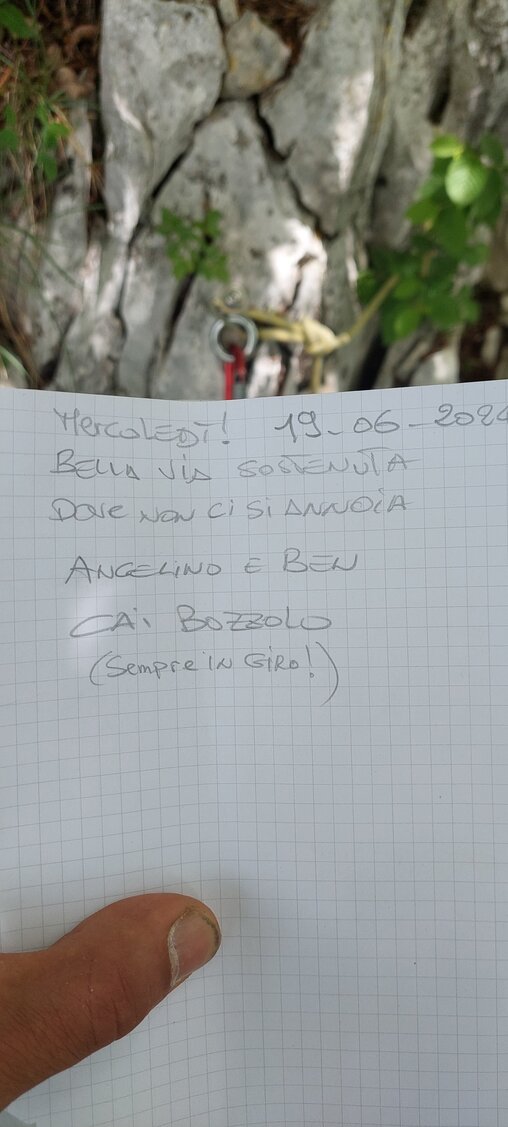 MERCOLEDI! 19-06-2024
BELLA VIA SOSTENUTA
DOVE NON CI SI ANNOIA
ANGELINO E BEN
CAI BOZZOLO
(SEMPRE IN GIRO!)